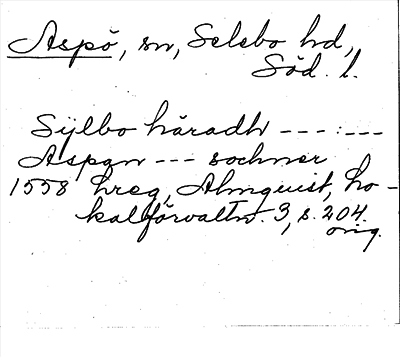 Aspö, sn, Selebo hd,
Söd. l.
Sylbo häradh ---:---
Aspan --- sochner
1558 hreg, Almquist, Lo-
kalförvaltn. 3, s. 204.
orig.